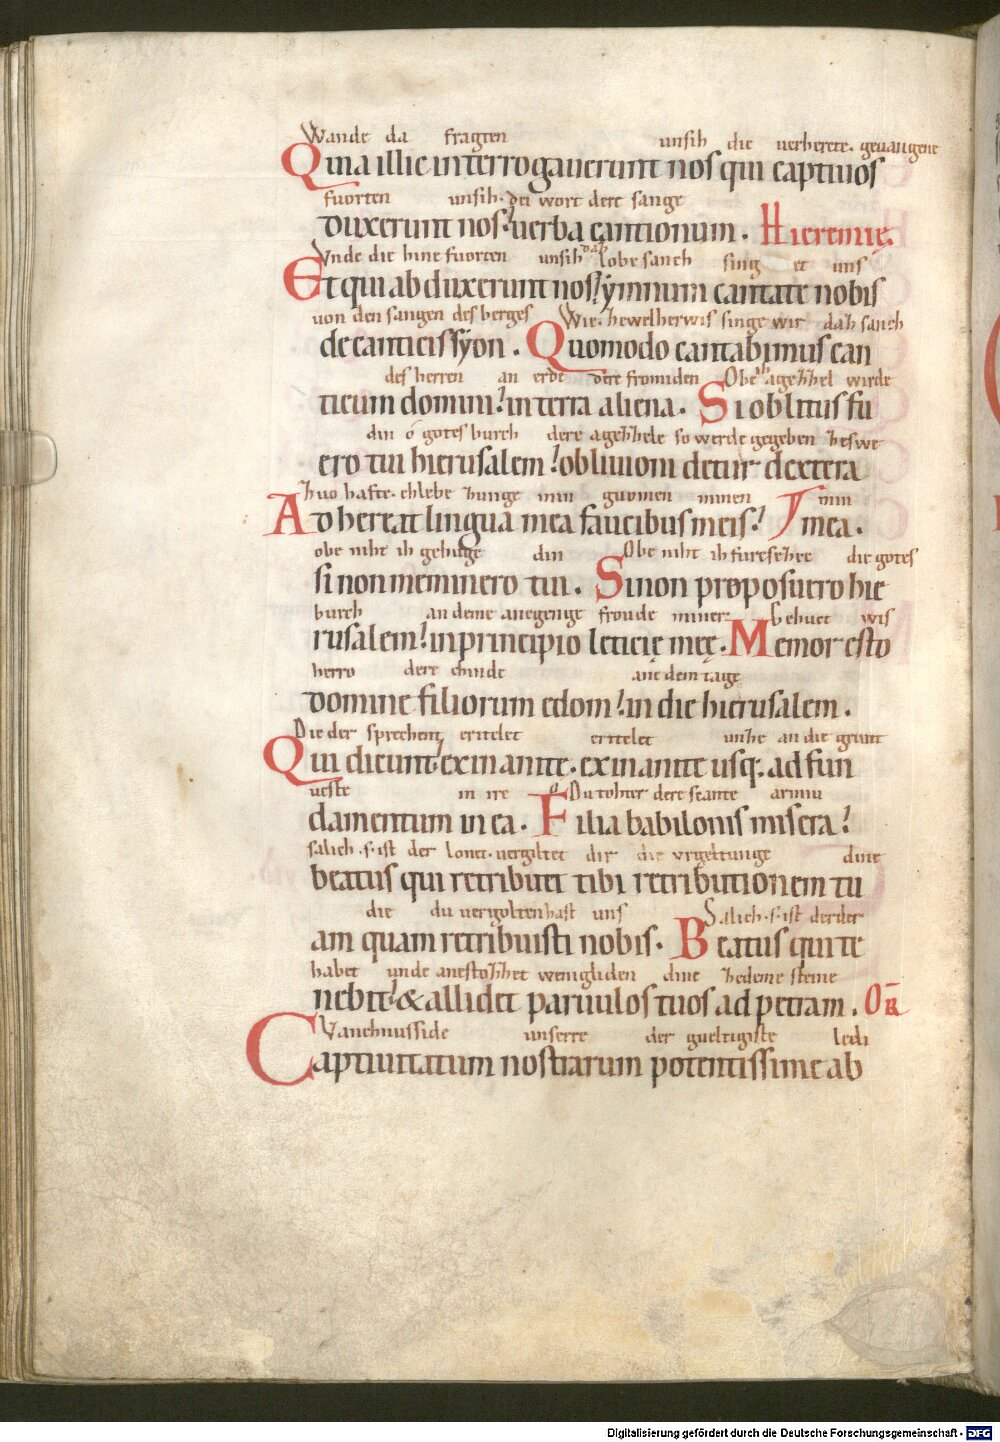 Wande da fragten unsih die uerherete. geuangene
Quia illic interrogauerunt nos qui captiuos
fuorten unsih. dei wort dere sange
duxerunt nos. uerba cantionum. Hieremię.
Vnde die hine fuorten unsih daz lobesanch sing et uns
Et qui abduxerunt nos ymnum cantate nobis
uon den sangen des berges Wie. hewelherwis singe wir daz sanch
de canticis syon. Quomodo cantabimus can
des herren an erde dere fromiden Obe ih agezzel wirde
ticum domini in terra aliena. Si oblitus fu
din o gotes burch dere agezzele so werde gegeben zeswe
ero tui hierusalem obliuioni detur dextera
zuo hafte. chlebe zunge min guomen minen min
Adhereat lingua mea faucibus meis mea.
obe niht ih gehuge din Obe niht ih furesezze die gotes
si non meminero tui. Si non proposuero hie
burch an deme anegenge froude miner Gehuct wis
rusalem in principio leticię meę. Memor esto
herro dere chinde ane dem tage
domine filiorum edom in die hierusalem.
Die der sprechent eritelet eritelet unze an die grunt
Qui dicunt exinanite. exinanite usq; ad fun
ueste in ire O Du tohter dere scante armiu
damentum in ea. Filia babilonis misera
salich .s. ist der lonet. uergiltet dir die urgeltunge dine
beatus qui retribuet tibi retributionem tu
die du uergoltenhast uns Salich .s. ist derder
am quam retribuisti nobis. Beatus qui te
habet unde anestozzet wenigliden dine zedeme steine
nebit & allidet paruulos tuos ad petram. OR
Vanchnusside unserre der gueltigiste ledi
Captiuitatum nostrarum potentissime ab
Digitalisierung gefördert durch die Deutsche Forschungsgemeinschaft - DFG